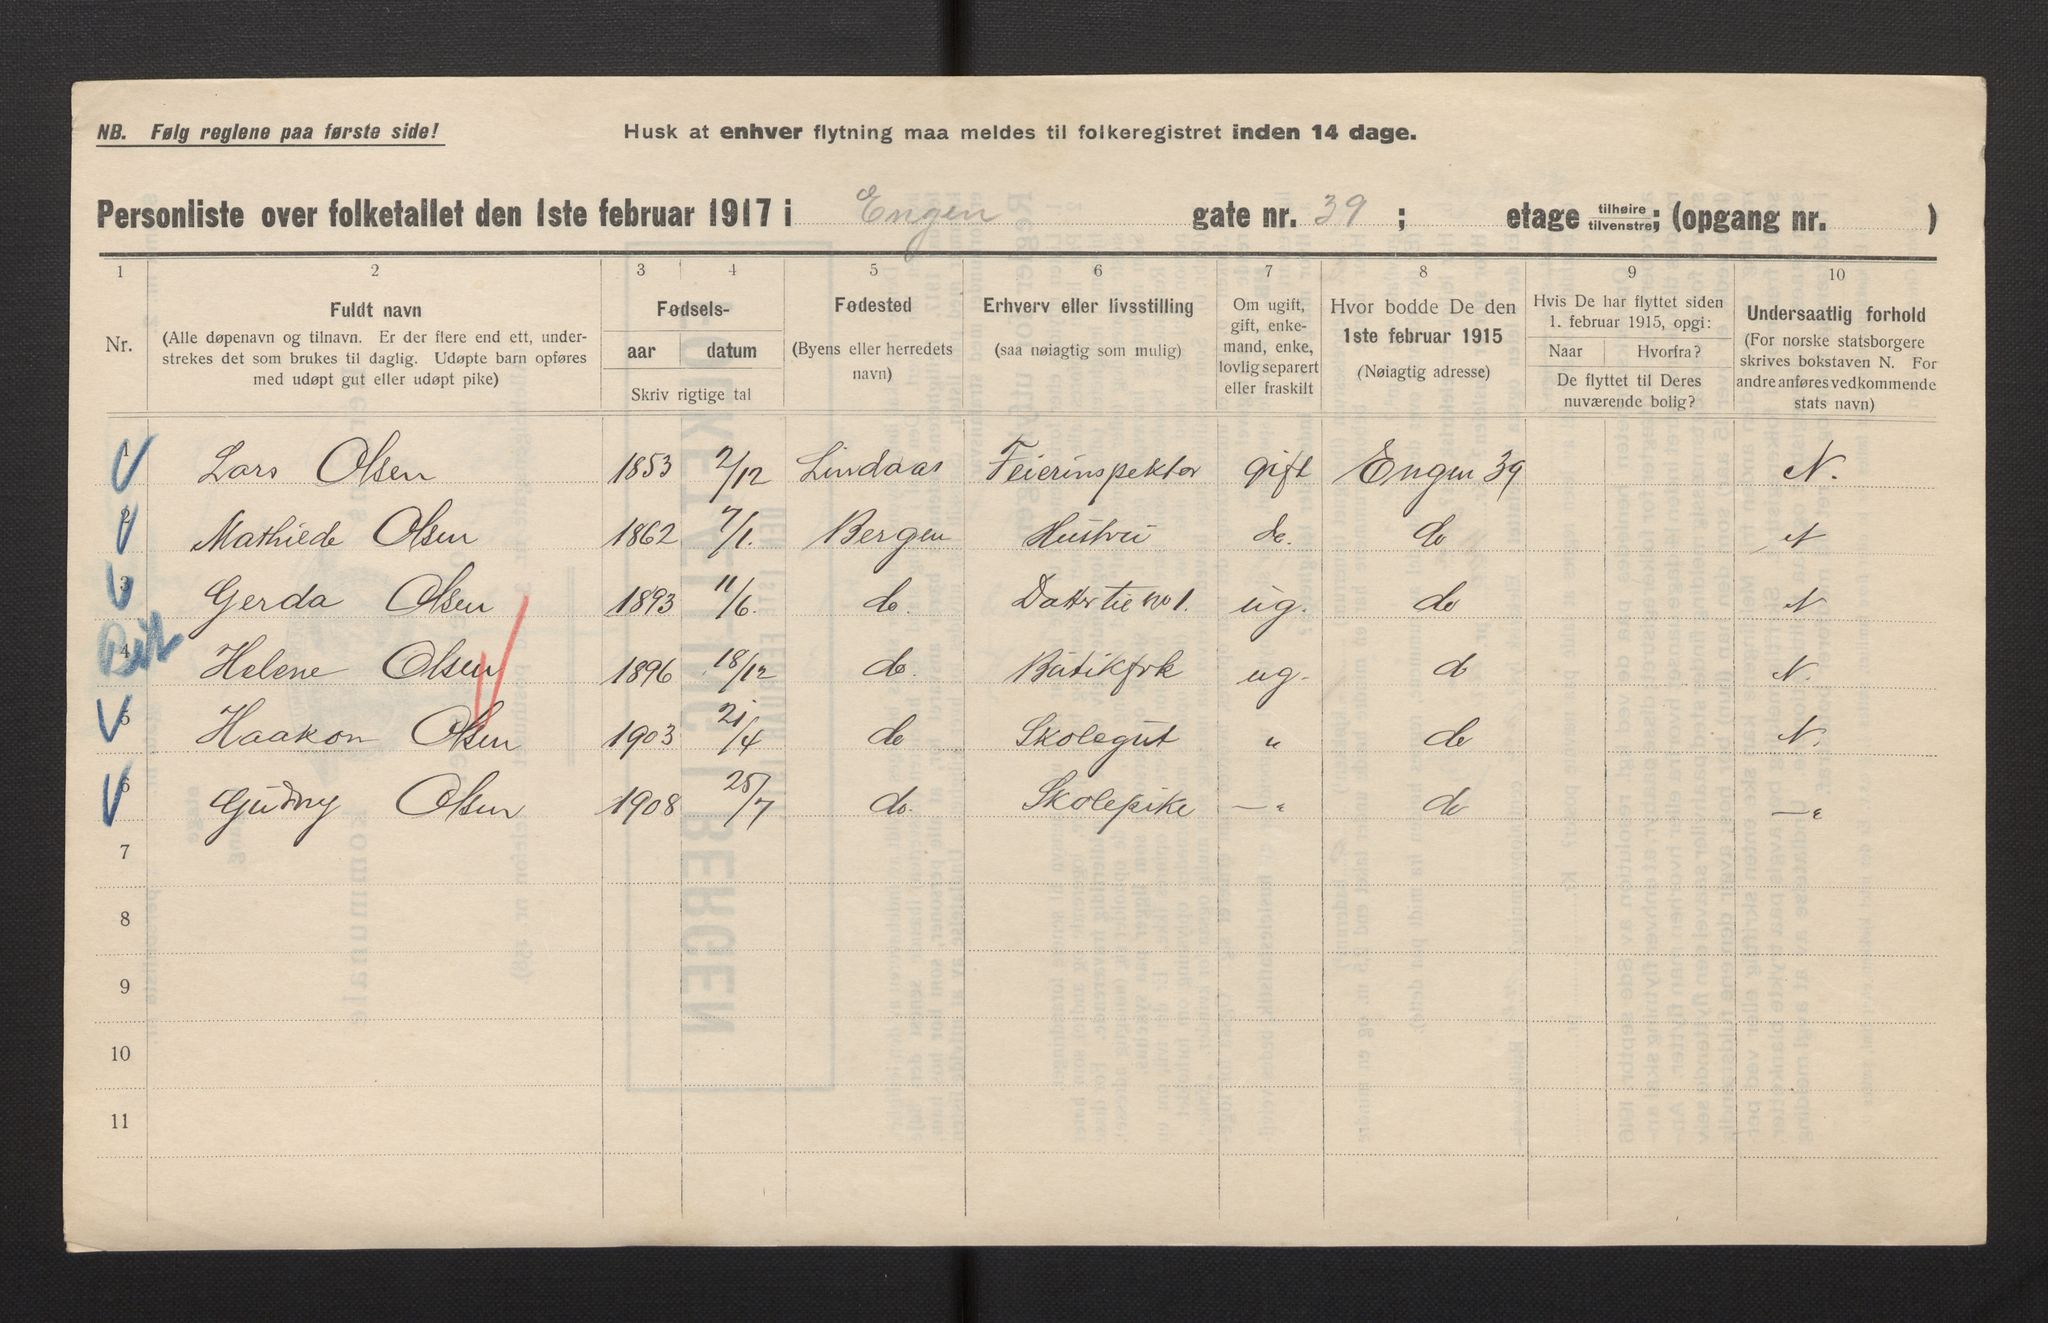 NB. Følg reglene paa første side!
Husk at enhver flytning maa meldes til folkeregistret inden 14 dage.
Personliste over folketallet den 1ste februar 1917 i Engen gate nr. 39 ; etage tilhøire/tilvenstre; (opgang nr. )
1 2 3 4 5 6 7 8 9 10
Nr.
Fuldt navn
(Alle døpenavn og tilnavn. Er der flere end ett, under-
strekes det som brukes til daglig. Udøpte barn opføres
med udøpt gut eller udøpt pike)
Fødsels-
aar datum
Skriv rigtige tal
Fødested
(Byens eller herredets
navn)
Erhverv eller livsstilling
(saa nøiagtig som mulig)
Om ugift,
gift, enke-
mand, enke,
lovlig separert
eller fraskilt
Hvor bodde De den
1ste februar 1915
(Nøiagtig adresse)
Hvis De har flyttet siden
1. februar 1915, opgi:
Naar Hvorfra?
De flyttet til Deres
nuværende bolig?
Undersaatlig forhold
(For norske statsborgere
skrives bokstaven N. For
andre anføres vedkommende
stats navn)
1 Lars Olsen 1853 2/12 Lindaas Feierinspektør gift Engen 39 N.
2 Mathilde Olsen 1862 7/1. Bergen Hustru do. do N
3 Gerda Olsen 1893 11/6. do. Datter til no 1. ug. do N
4 Helene Olsen 1896 18/12 do. Butikfrk ug. do N.
5 Haakon Olsen 1903 21/4 do Skolegut " do N.
6 Gudny Olsen 1908 25/7 do. Skolepike —" do —"
7
8
9
10
11